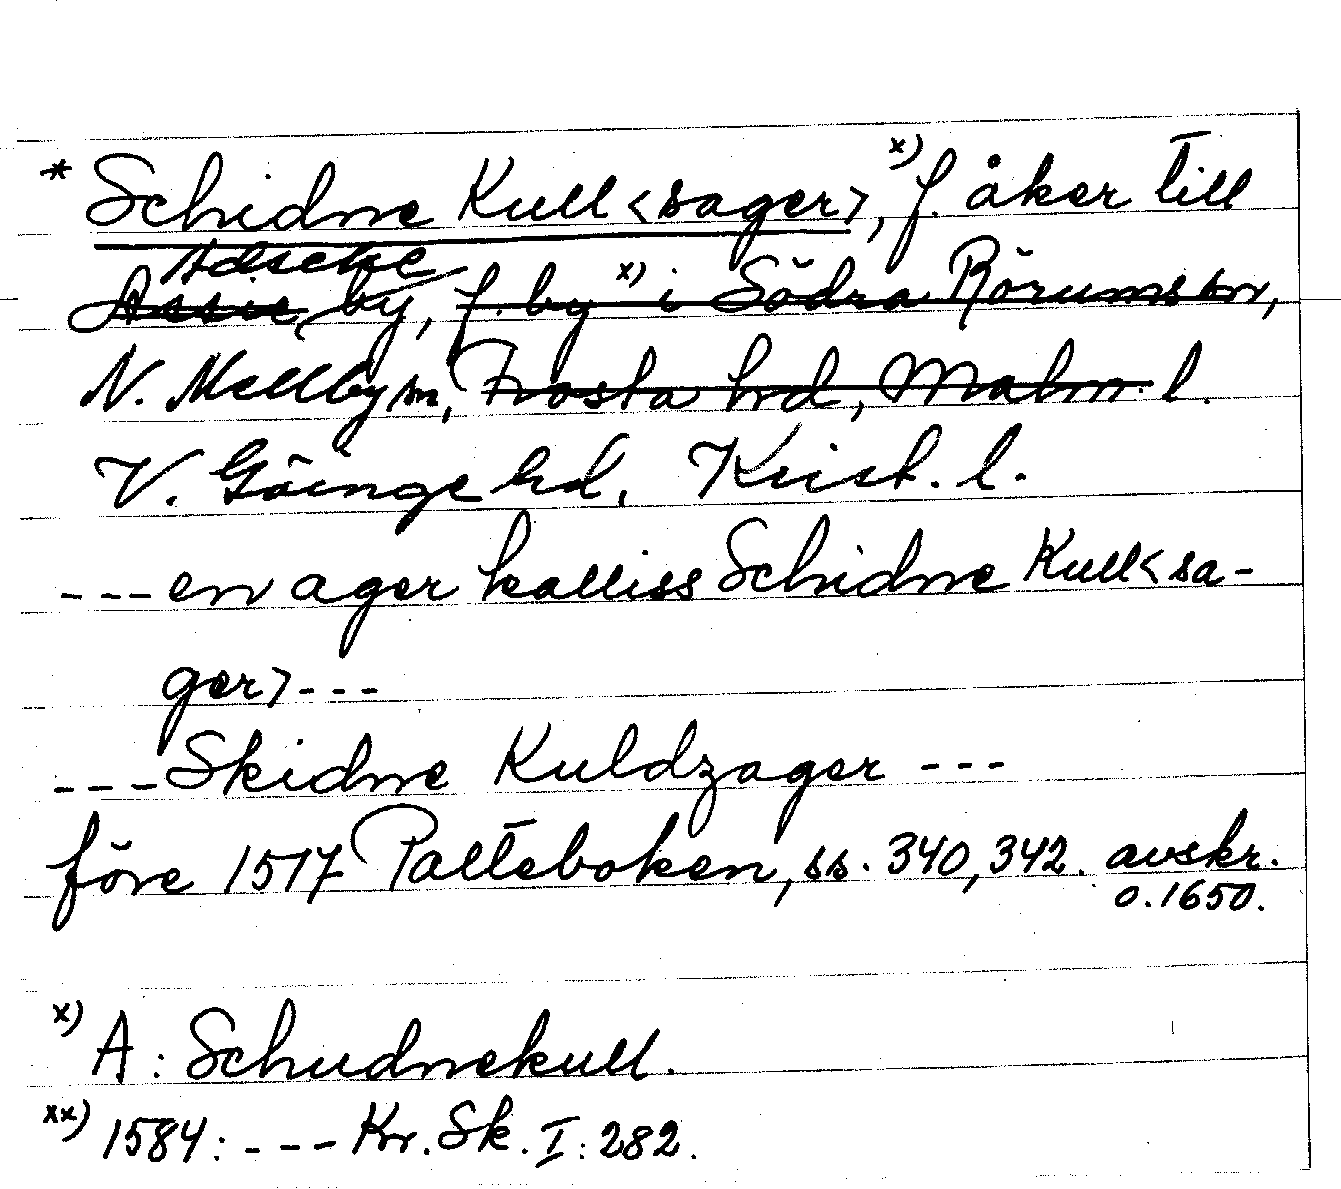 * Schidne Kull<sager>, x) f. åker till
Adsche
Assie by, f. by x) i Södra Rörums sn,
N. Mellby sn, Frosta hd, Malm. l.
V. Göinge hd, Krist. l.
---en ager kalliss Schidne Kull<sa-
ger>---
---Skidne Kuldzager ---
före 1517 Palteboken, ss. 340, 342. avskr.
o. 1650.
x) A: Schudnekull.
xx) 1584: --- Kr. Sk. I: 282.